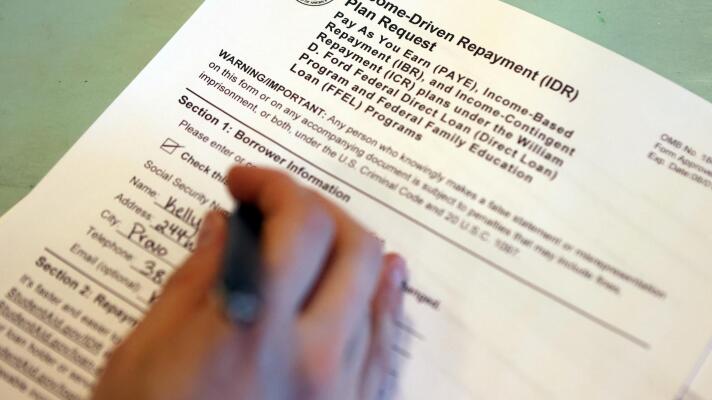 come-Driven Repayment (IDR)
Plan Request
Pay As You Earn (PAYE), Income-Based
Repayment (IBR), and Income-Contingent
Repayment (ICR) plans under the William
D. Ford Federal Direct Loan (Direct Loan)
Program and Federal Family Education
Loan (FFEL) Programs
OMB No.
Form Approved
Exp. Date:
WARNING/IMPORTANT: Any person who knowingly makes a false statement or misrepresentation
on this form or on any accompanying document is subject to penalties that may include fines,
imprisonment, or both, under the U.S. Criminal Code and 20 U.S.C. 1097.
Section 1: Borrower Information
Please enter or
Check this
changed.
Social Security
Name: Kelly
Address: 244
City: Provo
Telephone: 38
Email (optional):
Section 2: Repaym
It's faster and easier
StudentAid.gov/IDR
StudentAid.gov